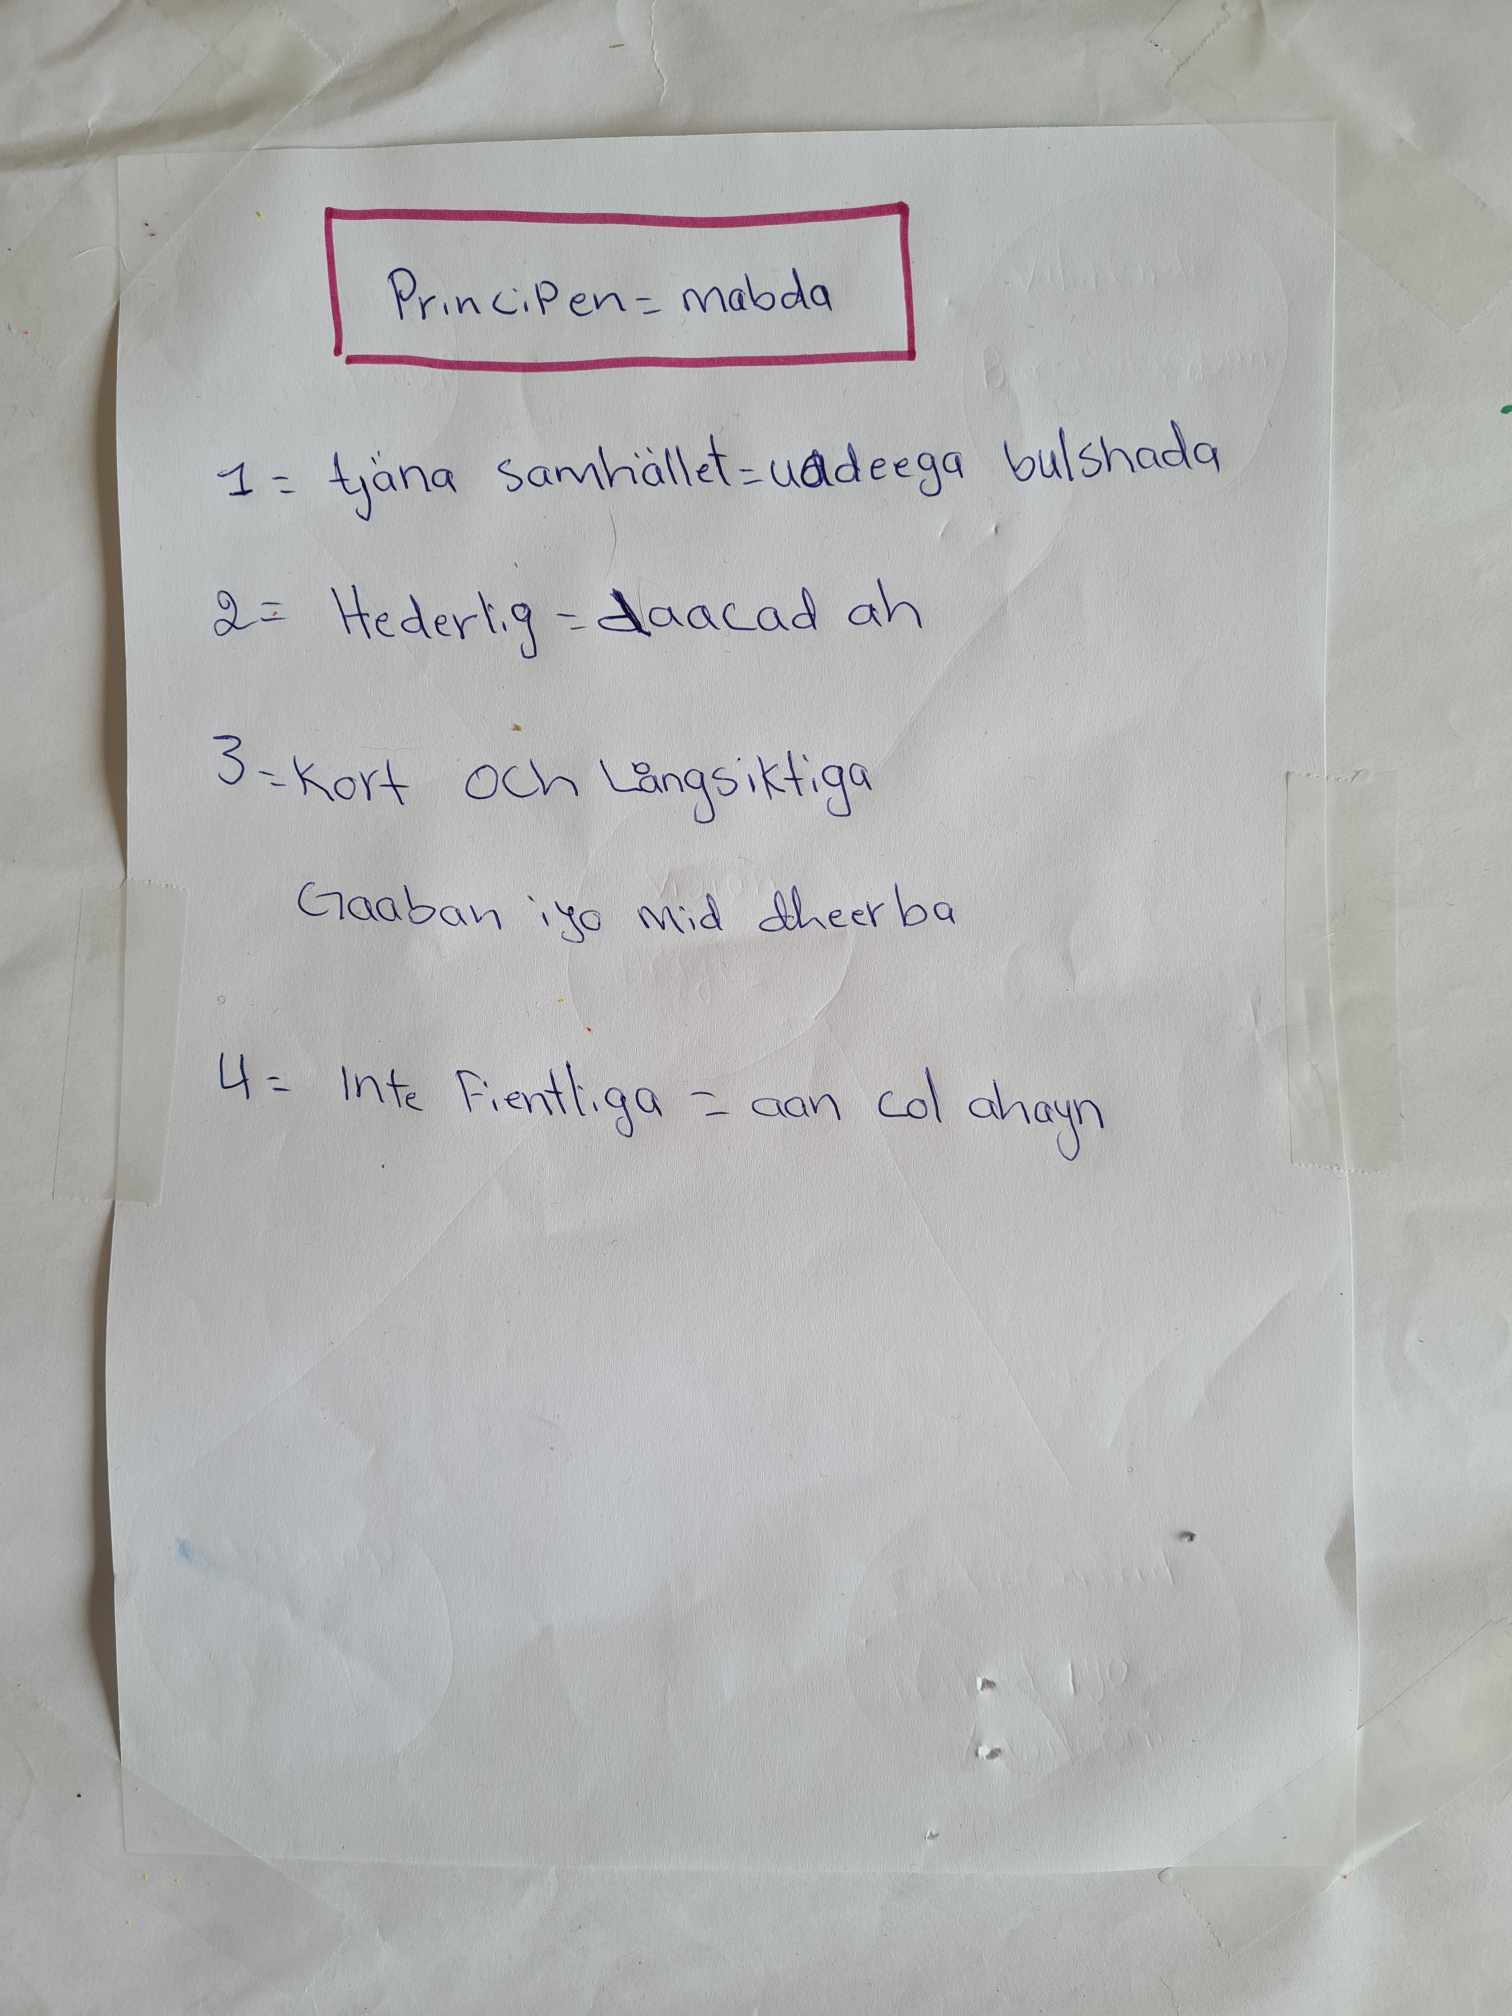 Principen = mabda
1 = tjäna samhället = uadeega bulshada
2 = Hederlig = daacad ah
3 = Kort och Långsiktiga
Gaaban iyo mid dheerba
4 = Inte Fientliga = aan col ahayn